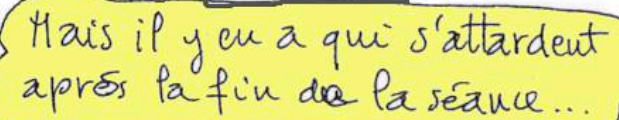 Mais il y en a qui s'attardent
après la fin de la séance...